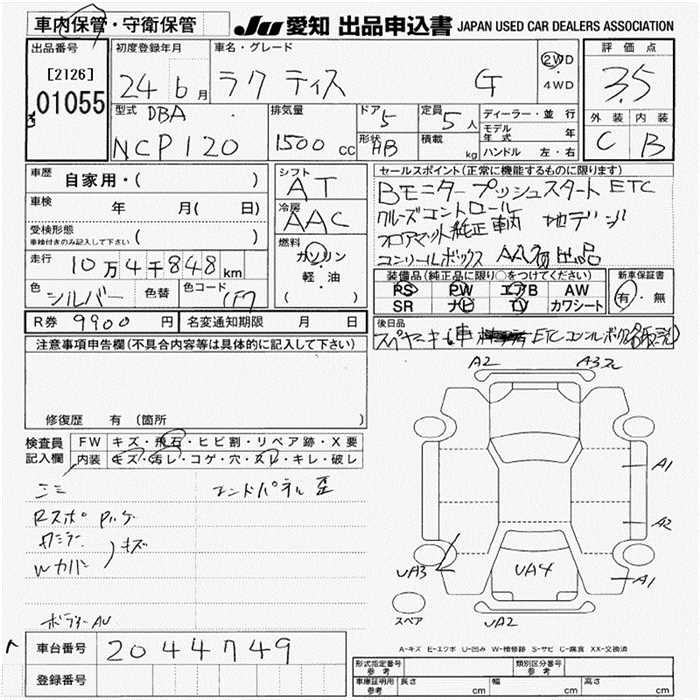 車内保管・守衛保管
JU 愛知 出品申込書 JAPAN USED CAR DEALERS ASSOCIATION
出品番号
[2126]
01055
初度登録年月
24年6月
車名・グレード
ラクティス G
2WD
・
4WD
評価点
3.5
外装 内装
C B
型式
DBA
NCP120
排気量
1500 cc
ドア
5
形状
HB
定員
5人
積載
kg
ディーラー・並行
モデル年式 年
ハンドル 左・右
車歴
自家用・( )
車検
年 月( 日)
受検形態
車検付きのみ記入して下さい ( )
走行
10万4千848km
色
シルバー
色替
色コード
(F7
シフト
AT
冷房
AAC
燃料
ガソリン
・
軽・油
( )
セールスポイント(正常に機能するものに限ります)
Bモニター プッシュスタート ETC
クルーズコントロール
フロアマット純正 車輌 地デジ
装備品(純正品に限り○をつけてください)
PS PW エアB AW
SR ナビ TV カワシート
新車保証書
有・無
R券 9900円
名変通知期限 月 日
後日品
注意事項申告欄(不具合内容等は具体的に記入して下さい)
修復歴 有 (箇所 )
検査員記入欄
FW キズ・飛石・ヒビ割・リペア跡・X要
内装 キズ・汚レ・コゲ・穴・スレ・キレ・破レ
エンドパネル 歪
キズ
Wカバー
A2
A3
A1
A2
A1
UA3
UA4
UA2
スペア
A-キズ E-エクボ U-凹み W-補修跡 S-サビ C-腐食 XX-交換済
車台番号 2044749
登録番号
形式指定番号 参考
類別区分番号 参考
車庫証明用 参考
長さ cm
幅 cm
高さ cm